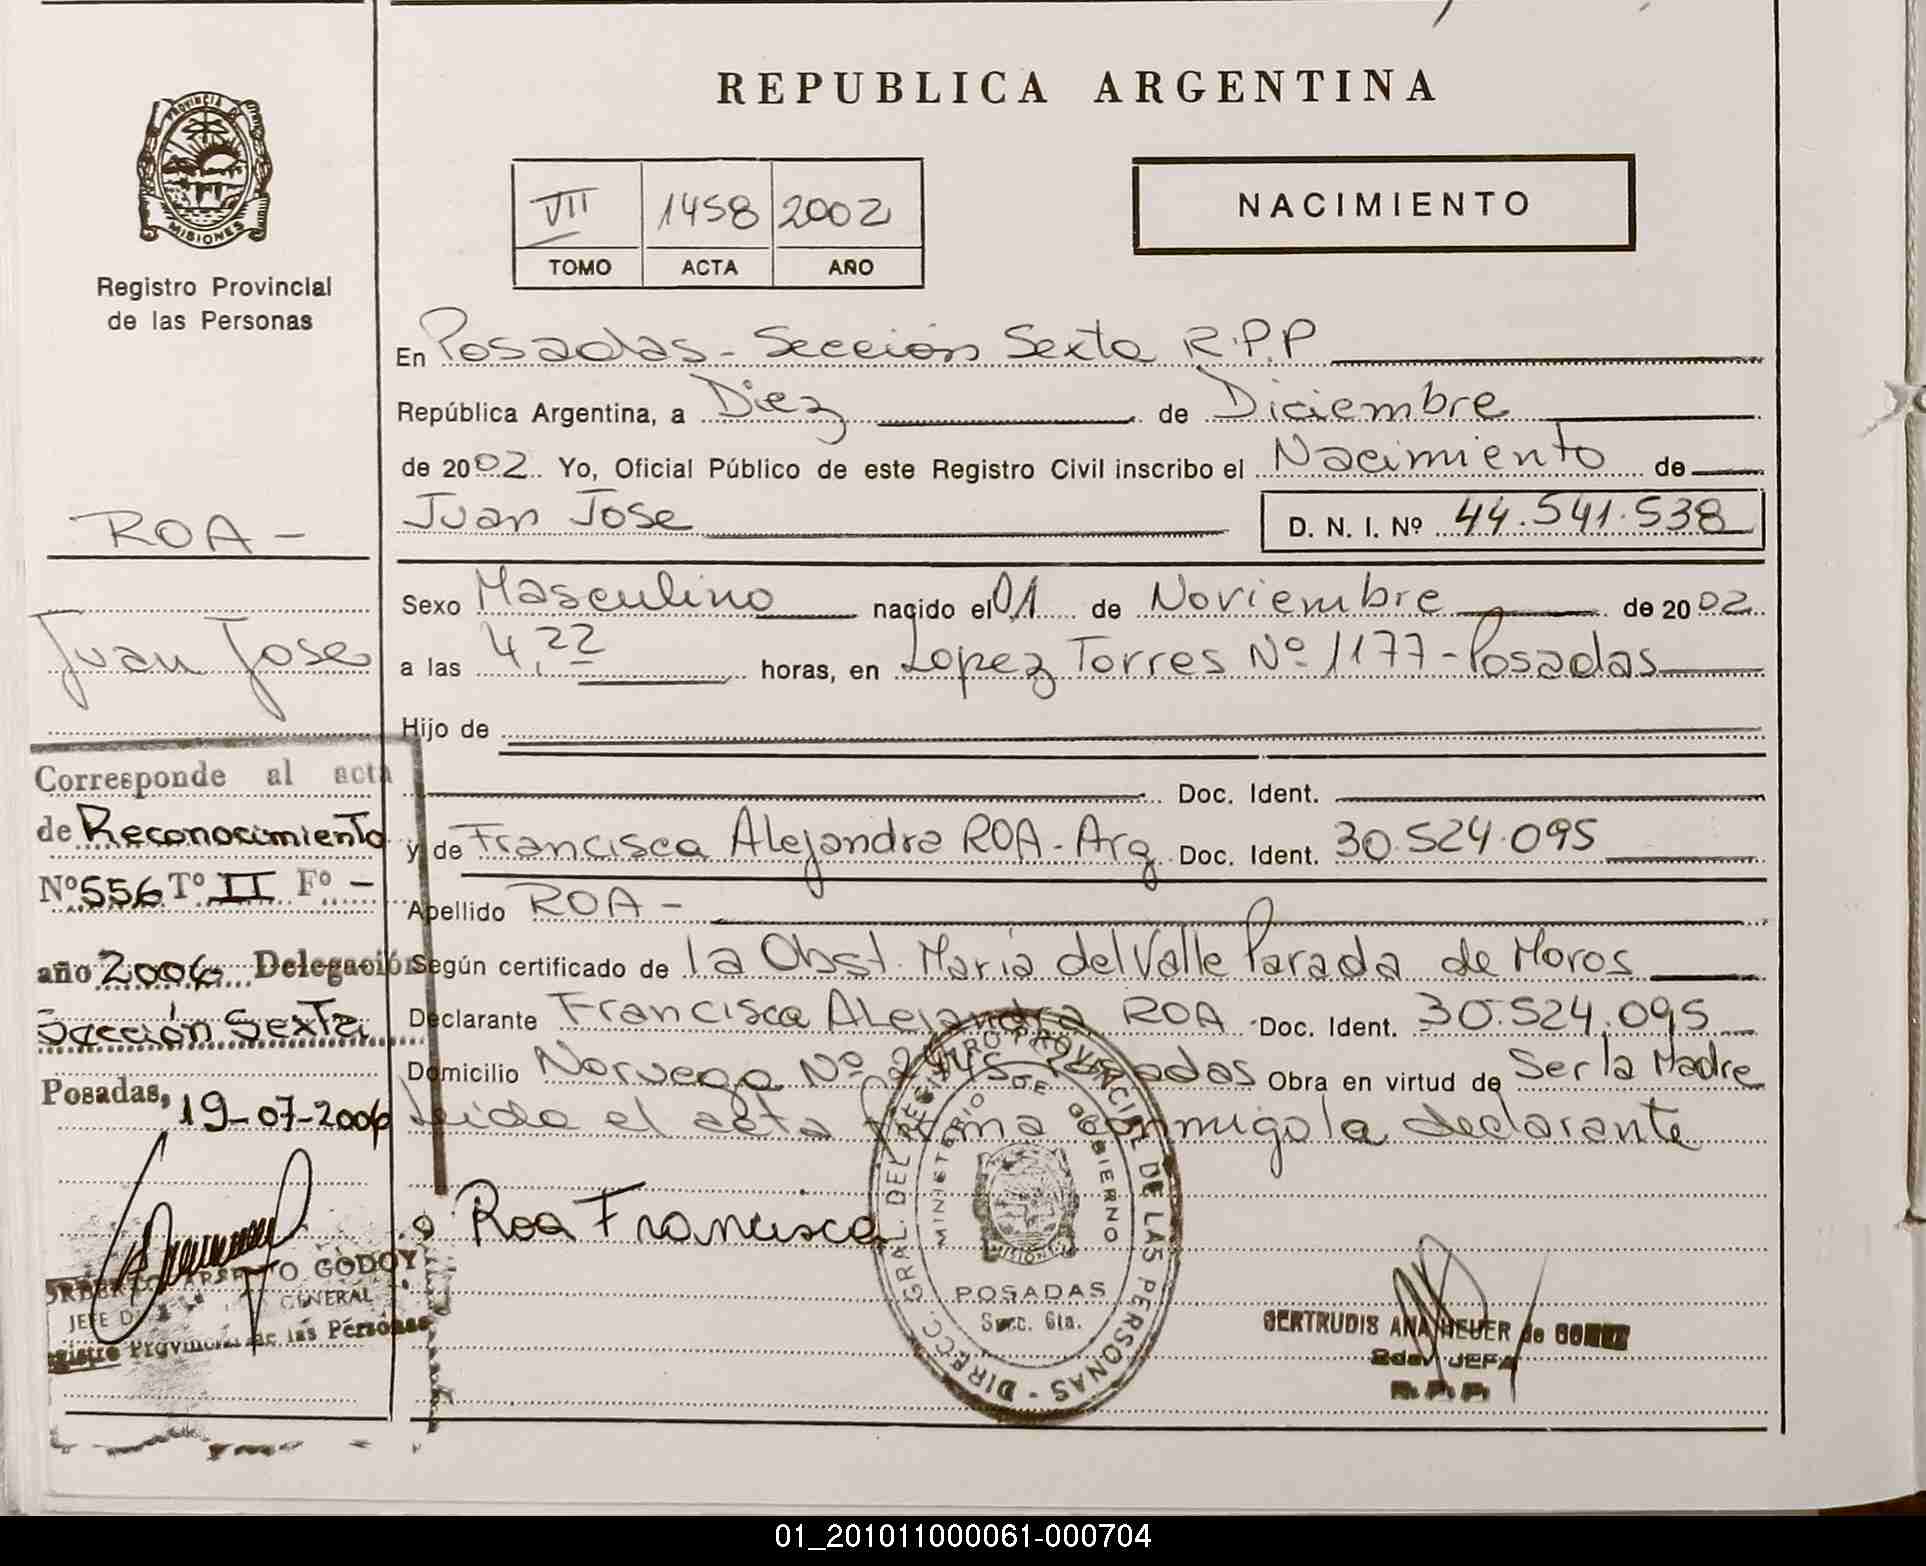 REPUBLICA ARGENTINA
PROVINCIA DE
MISIONES
Registro Provincial
de las Personas
VII 1458 2002
TOMO ACTA AÑO
NACIMIENTO
En Posadas - Sección Sexta R.P.P
República Argentina, a Diez de Diciembre
de 2002 Yo, Oficial Público de este Registro Civil inscribo el Nacimiento de
Juan Jose D. N. I. Nº 44.541.538
ROA -
Juan Jose
Sexo Masculino nacido el 01 de Noviembre de 2002
a las 4,22 horas, en Lopez Torres Nº 1177 - Posadas
Hijo de
Doc. Ident.
y de Francisca Alejandra ROA - Arg. Doc. Ident. 30.524.095
Apellido ROA -
Según certificado de la Obst. Maria del Valle Parada de Moros
Declarante Francisca Alejandra ROA Doc. Ident. 30.524.095
Domicilio Noruega Nº 2445 Posadas Obra en virtud de Ser la Madre
Leida el acta firma conmigo la declarante
Corresponde al acta
de Reconocimiento
Nº 556 Tº II Fº -
año 2006 Delegación
Sección Sexta
Posadas, 19-07-2006
GODOY
JEFE GENERAL
Registro Provincial de las Personas
Roa Francisca
DIRECC. GRAL. DEL REGISTRO PROVINCIAL DE LAS PERSONAS
MINISTERIO DE GOBIERNO
MISIONES
POSADAS
Secc. 6ta.
GERTRUDIS ANA HEUER de GOMEZ
2da. JEFA
R. P. P.
01_201011000061-000704